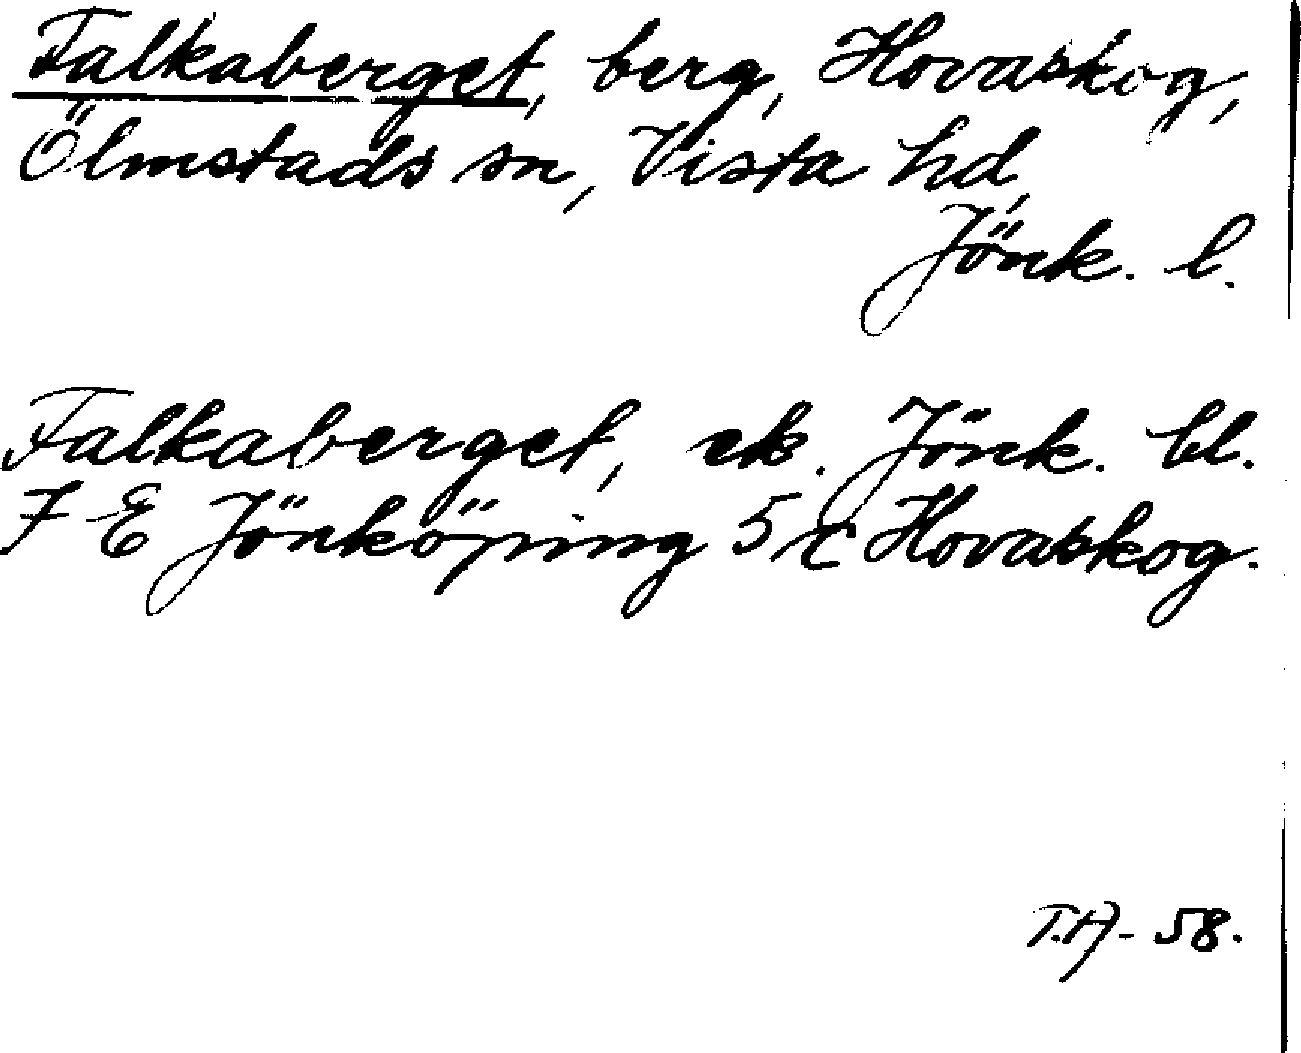 Falkaberget, berg, Hovaskog,
Ölmstads sn, Vista hd,
Jönk. l.
Falkaberget, ek. Jönk. bl.
7 E Jönköping 5 c Hovaskog.
T.A- 58.